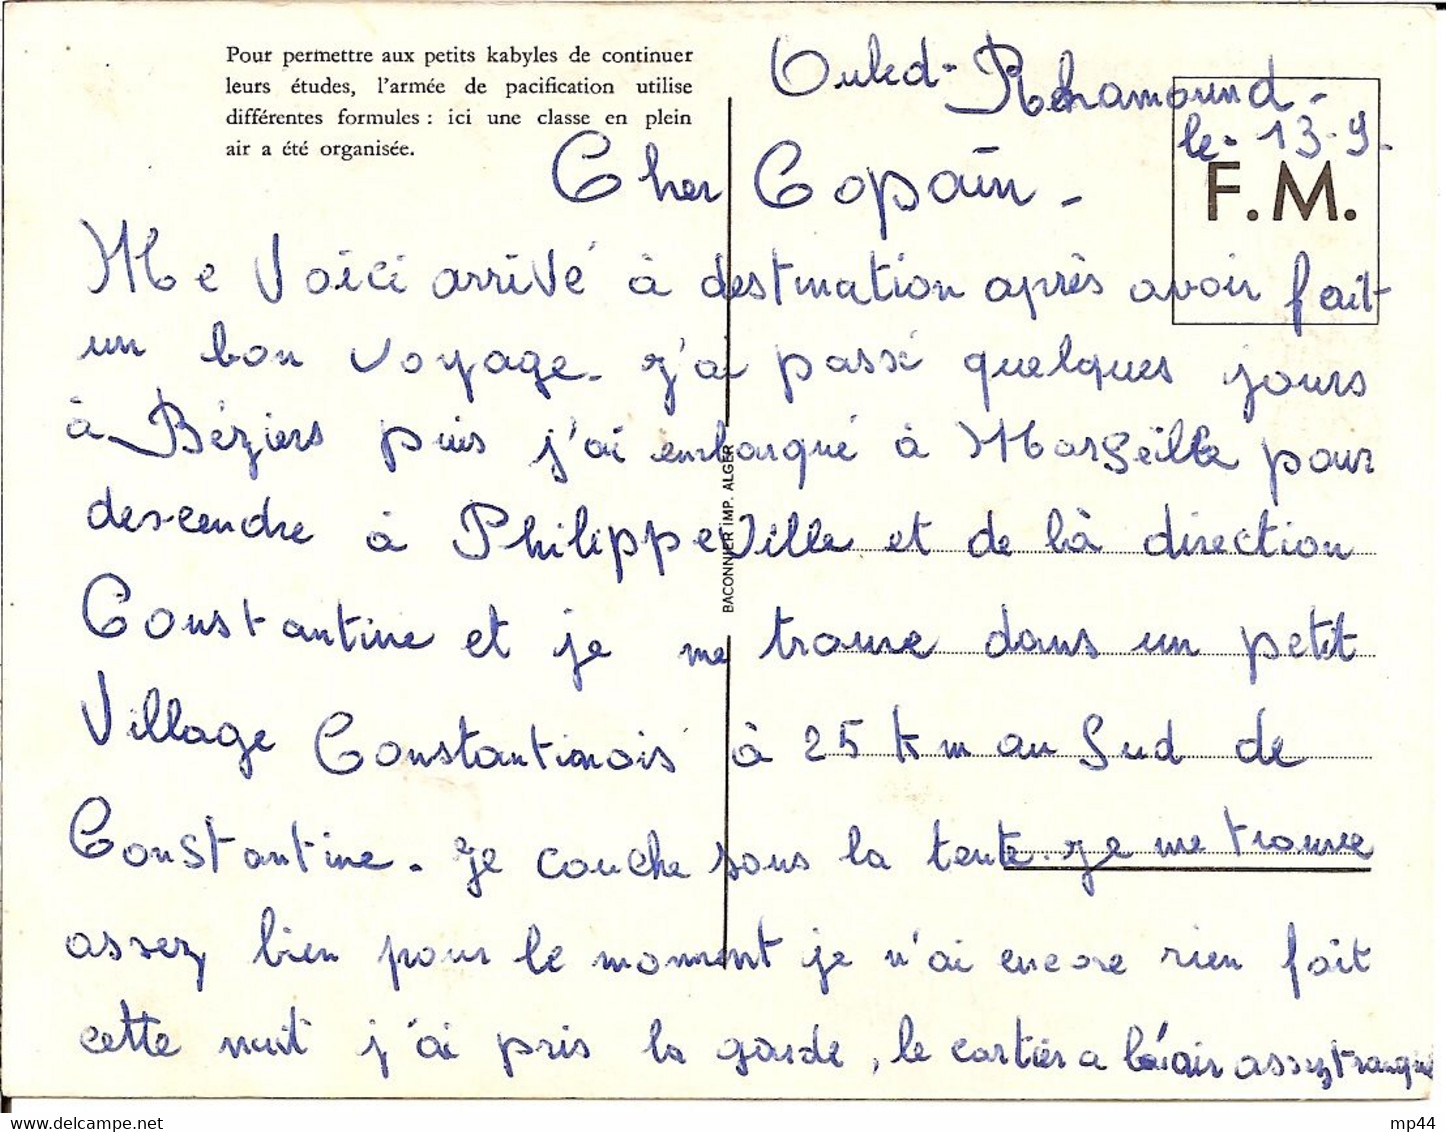 Pour permettre aux petits kabyles de continuer
leurs études, l'armée de pacification utilise
différentes formules : ici une classe en plein
air a été organisée.
Ouled-Rahamound-
le-13-9-
F.M.
Cher Copain-
Me Voici arrivé à destination après avoir fait
un bon voyage. J'ai passé quelques jours
à Béziers puis j'ai embarqué à Marseille pour
descendre à Philippeville et de là direction
Constantine et je me trouve dans un petit
Village Constantinois à 25 km au Sud de
Constantine. Je couche sous la tente. Je me trouve
assez bien pour le moment je n'ai encore rien fait
cette nuit j'ai pris la garde, le cartier a l'air assez tranquille
BACONNIER IMP. ALGER
www.delcampe.net
mp44